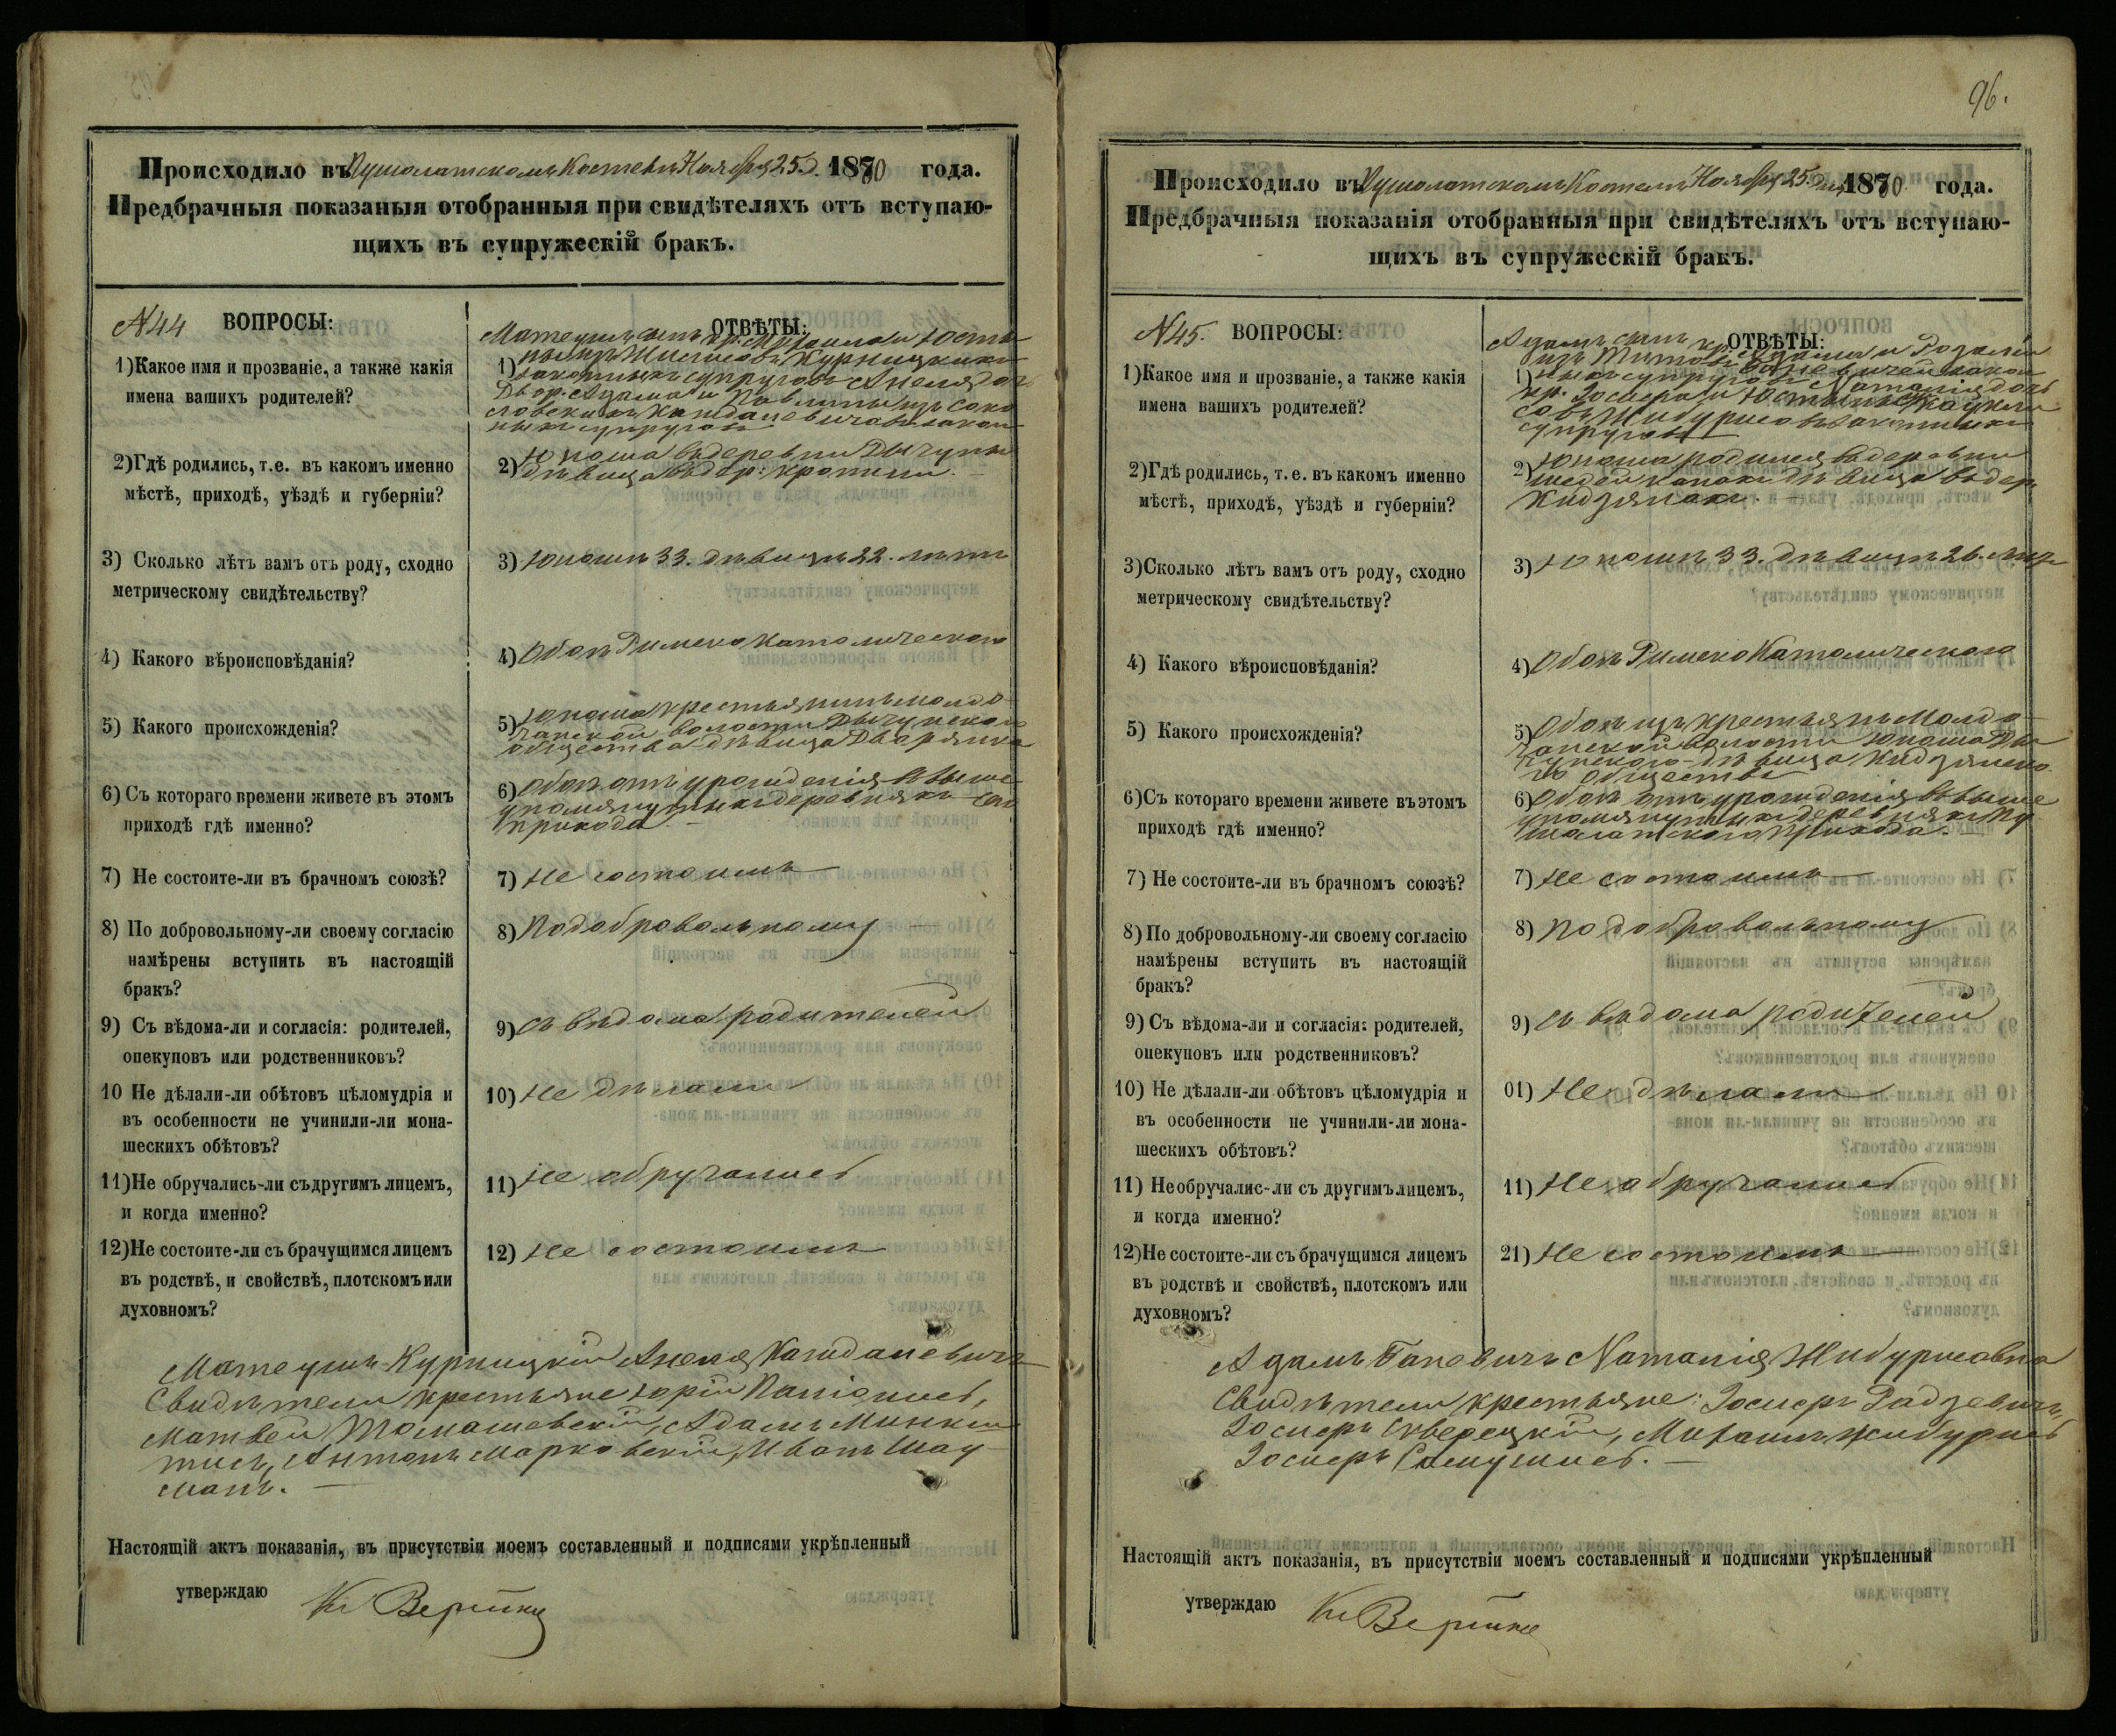 Происходило въ Пушолатскомъ Костелѣ Ноября 25 д. 1870 года.
Предбрачныя показаныя отобранныя при свидѣтеляхъ отъ вступаю-
щихъ въ супружескій бракъ.
N44 ВОПРОСЫ:
ОТВѢТЫ:
1)Какое имя и прозваніе, а также какія
имена вашихъ родителей?
1) Матеушъ сынъ кр. Михаила и Юсты-
Курницкихъ
законныхъ супруговъ Анеля дочь
Двор: Адама и Павлины изъ Соко
ловскихъ Кайдалевичовъ закон
ныхъ супруговъ
2)Гдѣ родились, т.е. въ какомъ именно
мѣстѣ, приходѣ, уѣздѣ и губерніи?
2) Юноша въ деревни
дѣвица въ дер:
3) Сколько лѣтъ вамъ отъ роду, сходно
метрическому свидѣтельству?
3) Юношѣ 33. дѣвицѣ 22. лѣтъ
4) Какого вѣроисповѣданія?
4) Обоя Римско Католическаго
5) Какого происхожденія?
5) Юноша крестьянинъ
волости
общества дѣвица Дворянка
6) Съ котораго времени живете въ этомъ
приходѣ гдѣ именно?
6) Обоя отъ урожденія въ выше
упомянутыхъ деревняхъ сего
прихода.
7) Не состоите-ли въ брачномъ союзѣ?
7) Не состоимъ
8) По добровольному-ли своему согласію
намѣрены вступить въ настоящій
бракъ?
8) По добровольному
9) Съ вѣдома-ли и согласія: родителей,
опекуновъ или родственниковъ?
9) Съ вѣдома родителей
10 Не дѣлали-ли обѣтовъ цѣломудрія и
въ особенности не учинили-ли мона-
шескихъ обѣтовъ?
10) Не дѣлали
11)Не обручались-ли съ другимъ лицемъ,
и когда именно?
11) Не обручались
12)Не состоите-ли съ брачущимся лицемъ
въ родствѣ, и свойствѣ, плотскомъ или
духовномъ?
12) Не состоимъ
Матеушъ Курницкій Анеля Кайдалевичъ
Свидѣтели крестьяне Юрій
Матвей Томашевскій, Адамъ
Антонъ Марковскій, Иванъ Шау
манъ.
Настоящій актъ показанія, въ присутствіи моемъ составленный и подписями укрѣпленный
утверждаю
96.
Происходило въ Пушолатскомъ Костелѣ Ноября 25 дня 1870 года.
Предбрачныя показанія отобранныя при свидѣтеляхъ отъ вступаю-
щихъ въ супружескій бракъ.
N45. ВОПРОСЫ:
ОТВѢТЫ:
1)Какое имя и прозваніе, а также какія
имена вашихъ родителей?
1) Адамъ сынъ кр. Адама и Розаліи
изъ
супруговъ Наталія дочь
кр. Іосифа и Юстыны
Жибурисовъ законныхъ
супруговъ
2)Гдѣ родились, т. е. въ какомъ именно
мѣстѣ, приходѣ, уѣздѣ и губерніи?
2) Юноша родился въ деревни
дѣвица въ дер
3)Сколько лѣтъ вамъ отъ роду, сходно
метрическому свидѣтельству?
3) Юношѣ 33. дѣвицѣ 26. лѣтъ
4) Какого вѣроисповѣданія?
4) Обоя Римско Католическаго
5) Какого происхожденія?
5) Обоя изъ крестьянъ
волости Юноша
дѣвица
общества
6)Съ котораго времени живете въ этомъ
приходѣ гдѣ именно?
6) Обоя отъ урожденія въ выше
упомянутыхъ деревняхъ Пу
шолатскаго прихода.
7) Не состоите-ли въ брачномъ союзѣ?
7) Не состоимъ
8) По добровольному-ли своему согласію
намѣрены вступить въ настоящій
бракъ?
8) По добровольному
9) Съ вѣдома-ли и согласія: родителей,
опекуновъ или родственниковъ?
9) Съ вѣдома родителей
10) Не дѣлали-ли обѣтовъ цѣломудрія и
въ особенности не учинили-ли мона-
шескихъ обѣтовъ?
01) Не дѣлали
11) Необручалис-ли съ другимъ лицемъ,
и когда именно?
11) Не обручались
12)Не состоите-ли съ брачущимся лицемъ
въ родствѣ и свойствѣ, плотскомъ или
духовномъ?
21) Не состоимъ
Адамъ Наталія Жибурисовна
Свидѣтели крестьяне: Іосифъ Радзевичъ,
Іосифъ Скверецкій, Михаилъ Жибурисъ
Іосифъ
Настоящій актъ показанія, въ присутствіи моемъ составленный и подписями укрѣпленный
утверждаю